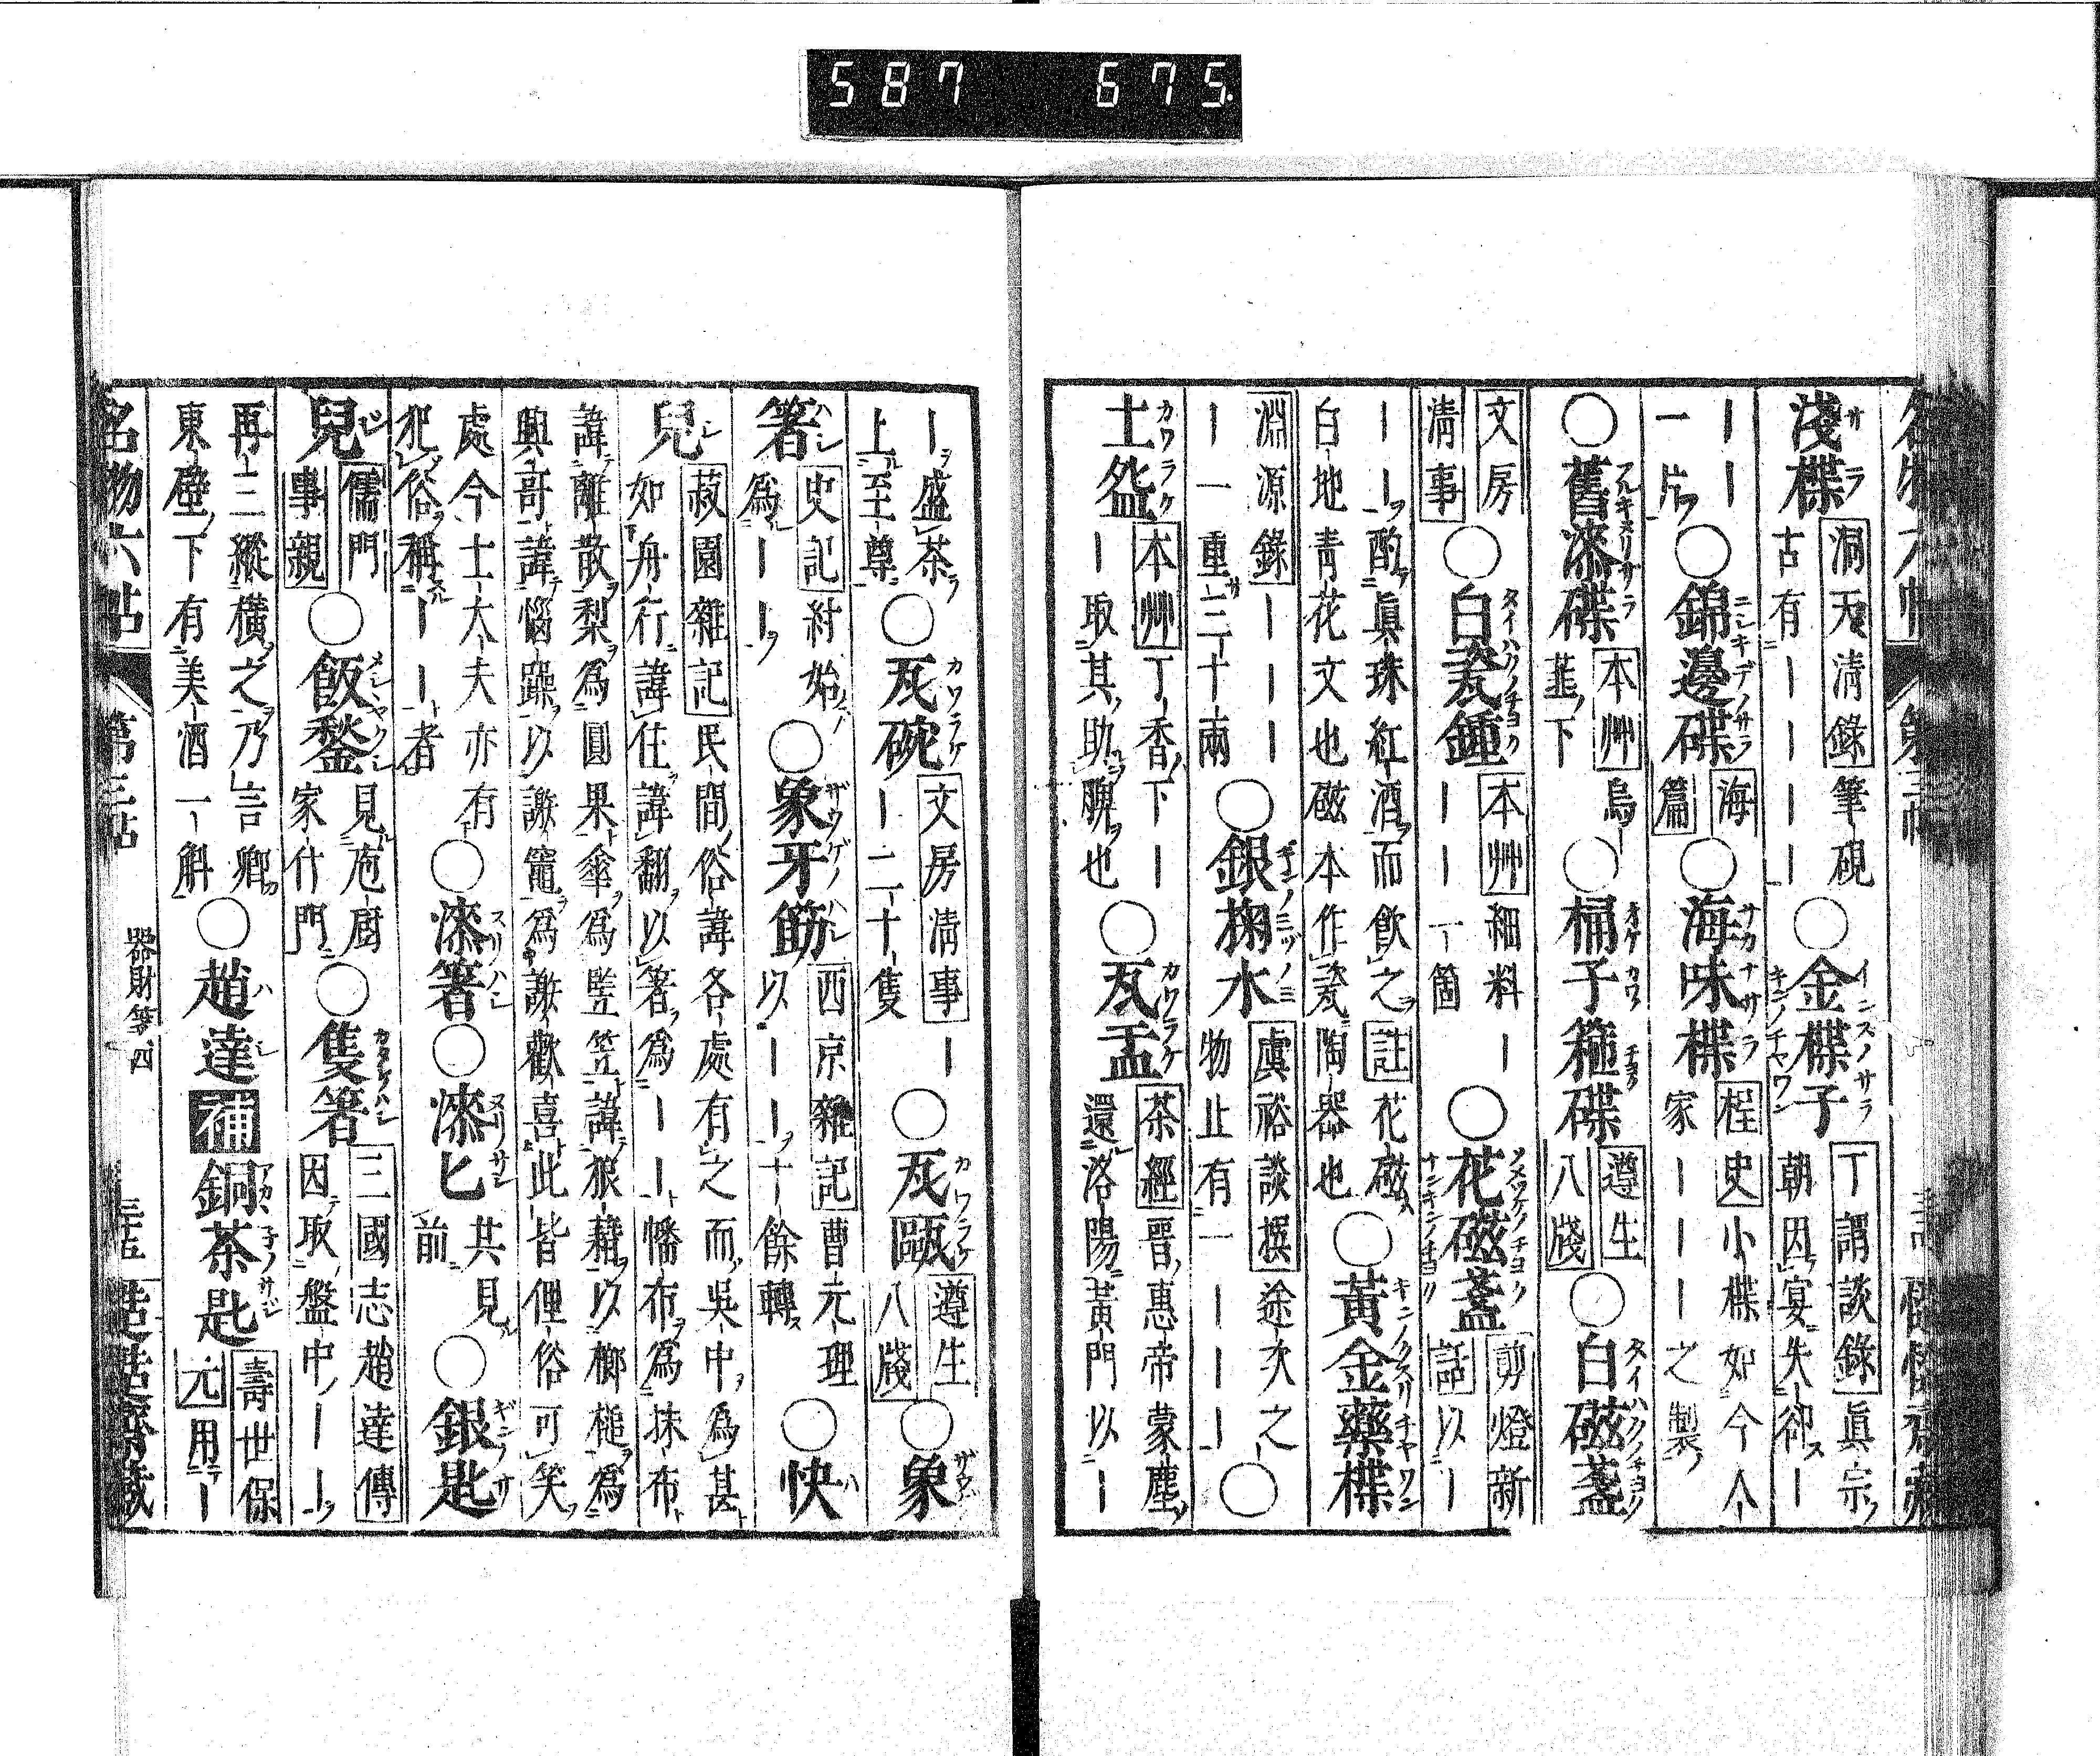 587 675
淺楪 洞天清錄 筆硯
古有｜｜｜｜ ○金楪子 丁謂談錄 眞宗
朝因宴失却｜
｜｜
一片 ○錦邊碟 海篇 ○海味楪 桯史 小楪如今人
家｜｜｜之製
○舊漆碟 本艸 烏
韮下 ○桶子箍碟 遵生八牋 ○白磁盞
文房清事 ○白瓷鍾 本艸 細料｜
｜｜一箇 ○花磁盞 剪燈新話 以｜
｜｜酌眞珠紅酒而飲之 註 花磁
白地靑花文也磁本作瓷陶器也 ○黃金藥楪
淵源錄 ｜｜｜
｜一重三十兩 ○銀掬水 虞裕談撰 途次之
物止有一｜｜｜ ○
土瓫 本艸 丁香下｜
｜取其助脾也 ○瓦盂 茶經 晋惠帝蒙塵
還洛陽黃門以｜
｜盛茶
上至尊 ○瓦碗 文房清事 ｜
｜二十隻 ○瓦甌 遵生八牋 ○象
箸 史記 紂始
爲｜｜ ○象牙筯 西京雜記 曹元理
以｜｜十餘轉 ○快
兒 菽園雜記 民間俗諱各處有之而吳中爲甚
如舟行諱住諱翻以箸爲｜｜幡布爲抹布
諱離散梨爲圓果傘爲竪笠諱狼藉以榔槌爲
興哥諱惱躁以謝竈爲謝歡喜此皆俚俗可笑
處今士大夫亦有
犯俗稱｜｜者 ○漆箸 ○漆匕 共見
前 ○銀匙
兒 儒門事親 ○飯鍫 見庖厨
家什門 ○隻箸 三國志趙達傳
因取盤中｜｜
再三縱橫之乃言卿
東壁下有美酒一斛 ○趙達 補 銅茶匙 壽世保元
用｜
名物六帖 第三帖 器財箋四 三十五